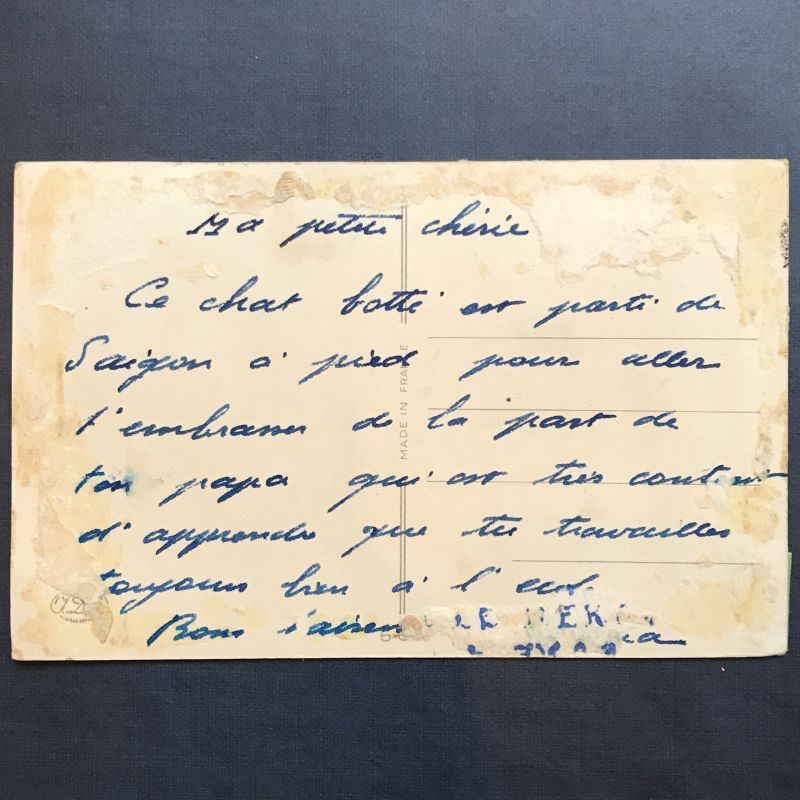 Ma petite chérie
Ce chat botté est parti de
Saigon à pied pour aller
t'embrasser de la part de
ton papa qui est très content
d'apprendre que tu travailles
toujours bien à l'école.
Bons baisers
MADE IN FRANCE